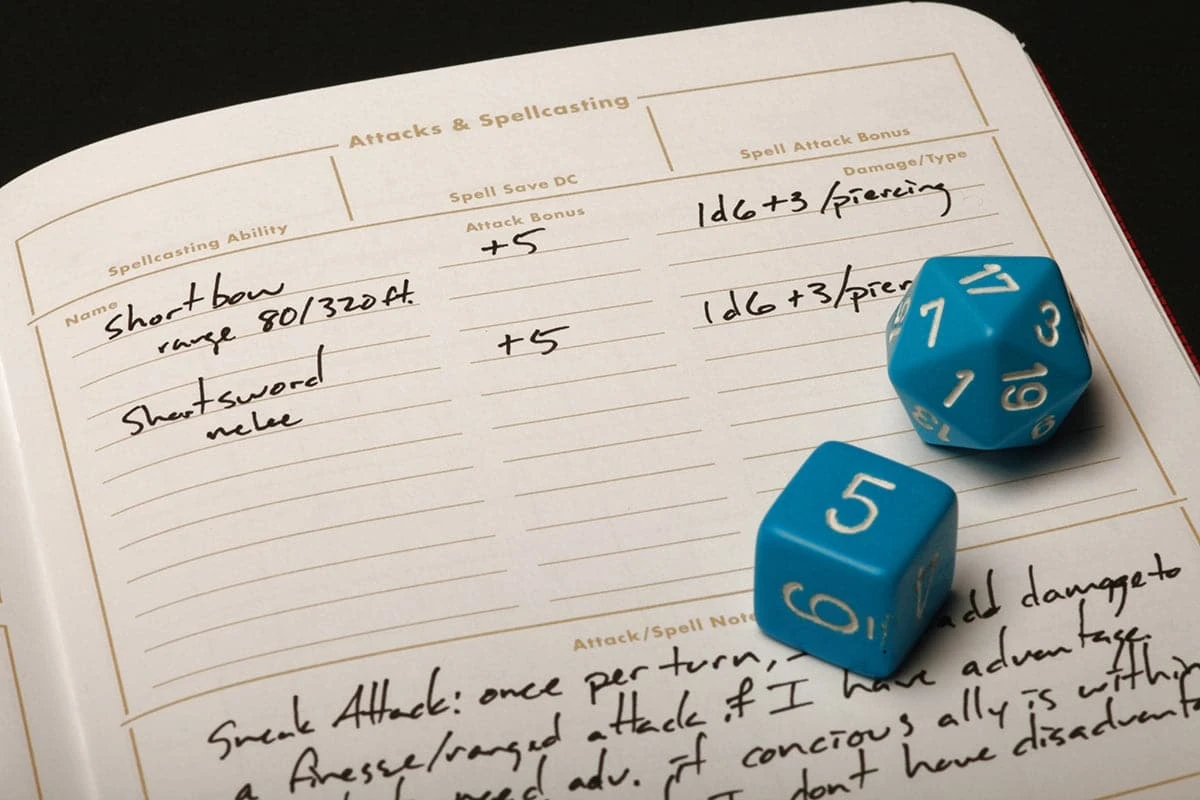 Attacks & Spellcasting
Spellcasting Ability
Spell Save DC
Spell Attack Bonus
Name
Attack Bonus
Damage/Type
Shortbow
+5
1d6+3/piercing
range 80/320ft.
Shortsword
+5
1d6+3/pier
melee
17
7
3
1
19
13
9
5
6
Attack/Spell Note
Sneak Attack: once per turn, add damage to
a finesse/ranged attack if I have advantage.
need adv. if concious ally is within
I dont have disadvanta